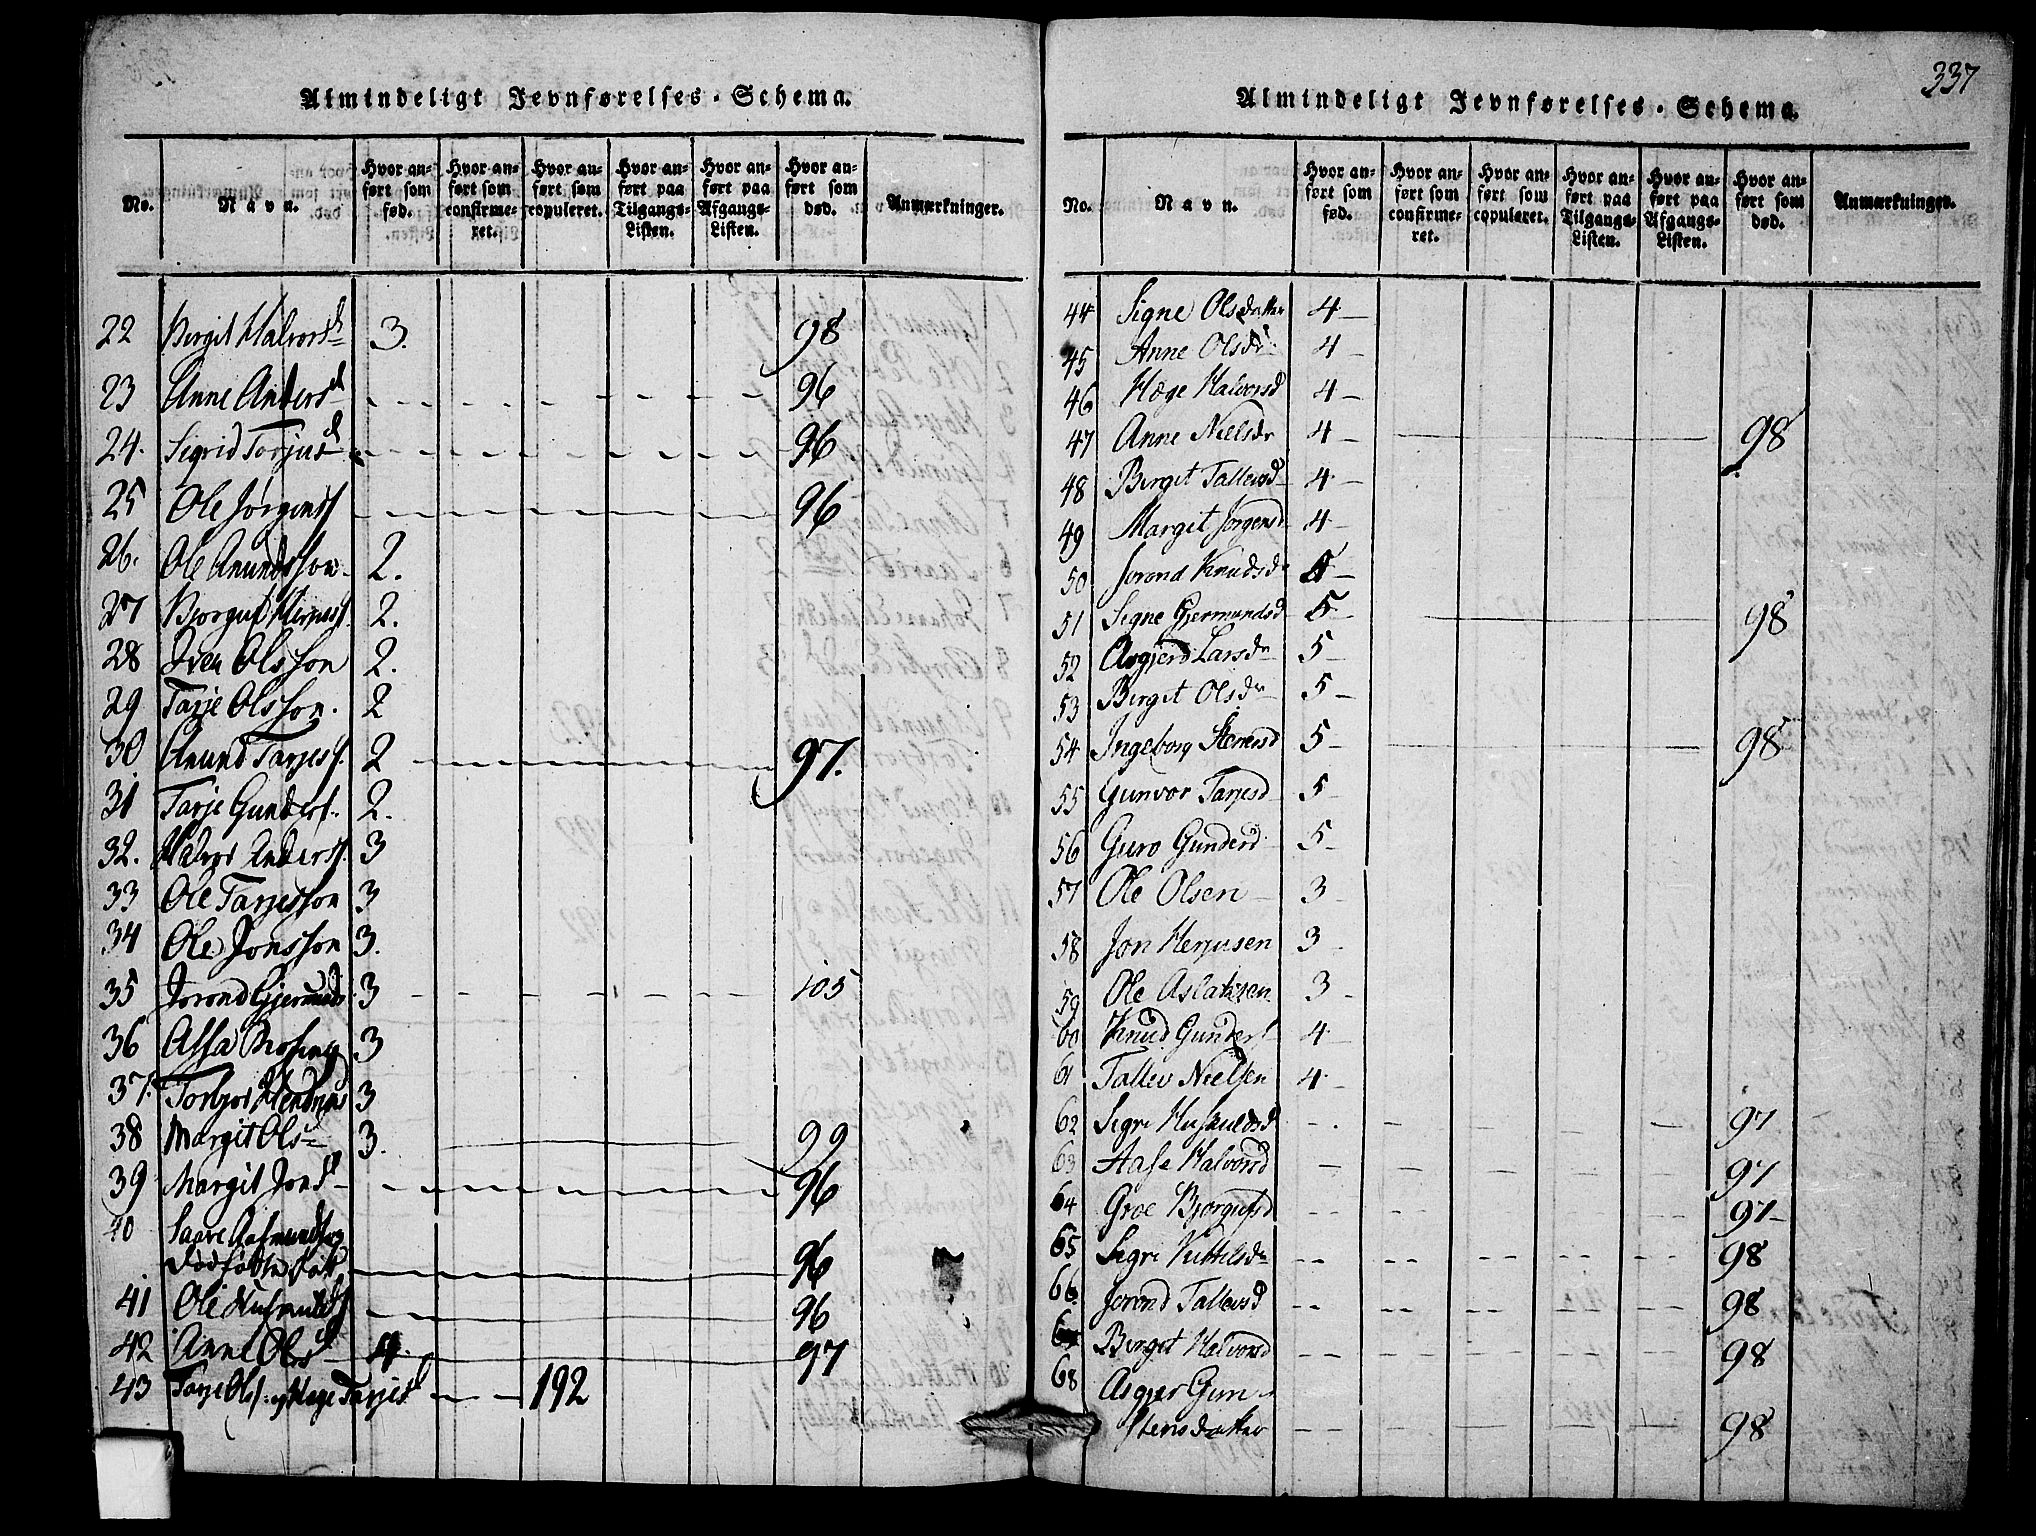 337
Almindeligt Jevnførelses-Schema.
No. Navn. Hvor anført som fød. Hvor anført som confirmeret. Hvor anført som copuleret. Hvor anført paa Tilgangs-Listen. Hvor anført paa Afgangs-Listen. Hvor anført som død. Anmærkninger.
22 Birgit Halvorsd 3. 98
23 Anne Andersd 96
24. Sigrid Torjusd 96
25 Ole Jørgenss 96
26. Ole Anundsson 2.
27 Bjorguf 2.
28 Iven Olsson 2.
29 Tarje Olsson. 2
30 Anund Tarjess. 2 97.
31 Tarje Gunders. 2.
32. Halvor Anderss. 3
33 Ole Tarjesson 3
34 Ole Jonsson 3.
35 Jorond Gjermunds 3 105
36 Assa 3
37. Torbjor 3
38 Margit Ols 3. 99
39 Margit Jonsd 96
40 Aasmundss og
dødfødte 96
41 Ole 96
42 Anne Olsd 4. 97
43 Tarje Ols. og Hæge Tarjesd 192
Almindeligt Jevnførelses-Schema.
No. Navn. Hvor anført som fød. Hvor anført som confirmeret. Hvor anført som copuleret. Hvor anført paa Tilgangs-Listen. Hvor anført paa Afgangs-Listen. Hvor anført som død. Anmærkninger.
44 Signe Olsdatter 4-
45 Anne Olsdr 4-
46 Hæge Halvorsd 4-
47 Anne Nielsdr 4- 98
48 Birgit Tallevsd 4-
49 Margit Jorgensd 4-
50 Jorond Knudsdr 5-
51 Signe Gjermundsd 5- 98
52 Asgjerd Larsdr 5-
53 Birgit Olsdr 5-
54 Ingeborg 5- 98
55 Gunvor Tarjesd 5-
56 Guro Gundersd 5-
57 Ole Olsen 3-
58 Jon Herjusen 3-
59 Ole Aslaksen 3-
60 Knud Gunders 4-
61 Tallev Nielsen 4-
62 Segri 97
63 Aase Halvorsd 97
64 Groe Bjorgufsd 97-
65 Segri Kittelsdr 98
66. Jorond Tallevsd 98
67 Birgit Halvorsd 98
68 Asgjer Gunstensdatter 98